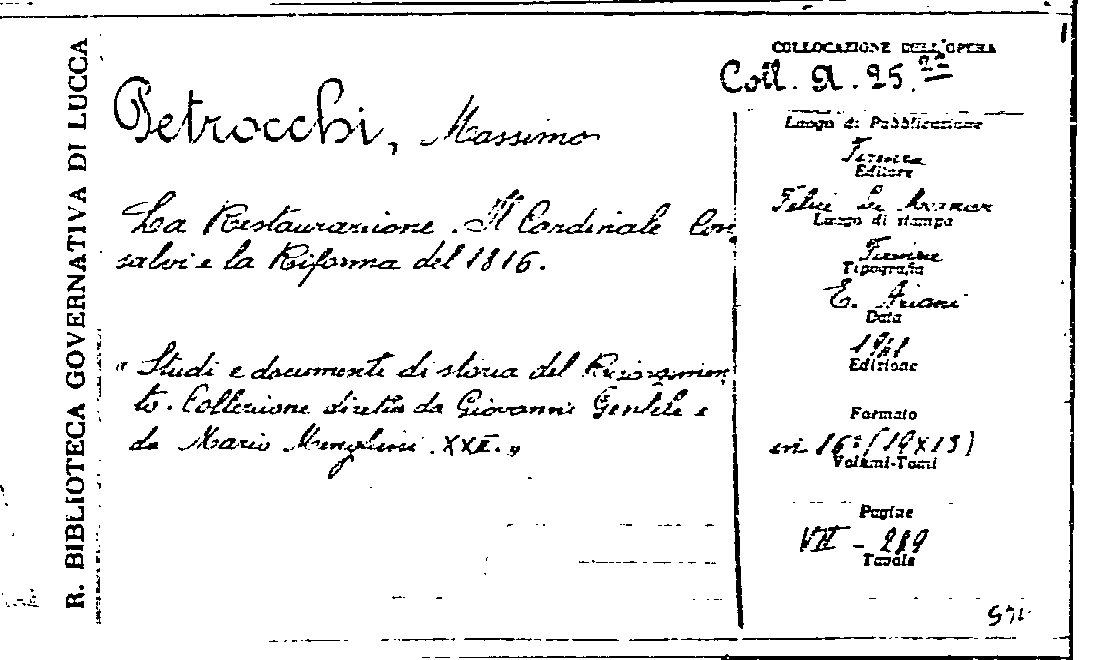 R. BIBLIOTECA GOVERNATIVA DI LUCCA
Petrocchi, Massimo
La Restaurazione. Il Cardinale Con
salvi e la Riforma del 1816.
"Studi e documenti di storia del Risorgimen
to. Collezione diretta da Giovanni Gentile e
da Mario Menghini. XXII."
COLLOCAZIONE DELL'OPERA
Coll. A. 25.
Luogo di Pubblicazione
Firenze
Editore
Felice Le Monnier
Luogo di stampa
Firenze
Tipografia
E. Ariani
Data
Edizione
Formato
in 16° (19x13)
Volumi-Tomi
Pagine
VII - 289
Tavole